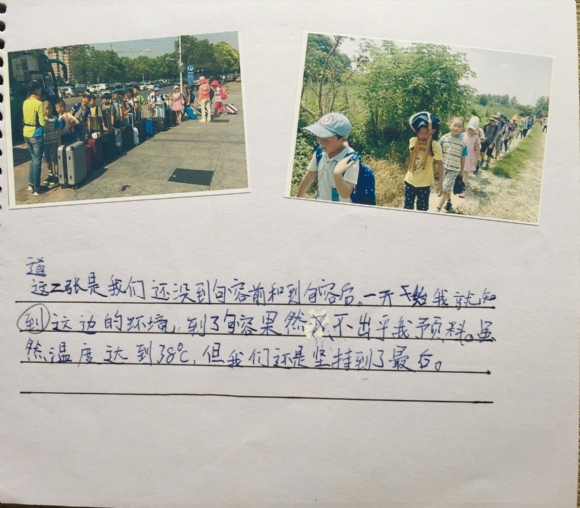 道
这二张是我们还没到句容前和到句容后。一开始我就知
到这边的环境，到了句容果然不出乎我预料。虽
然温度达到38℃，但我们还是坚持到了最后。